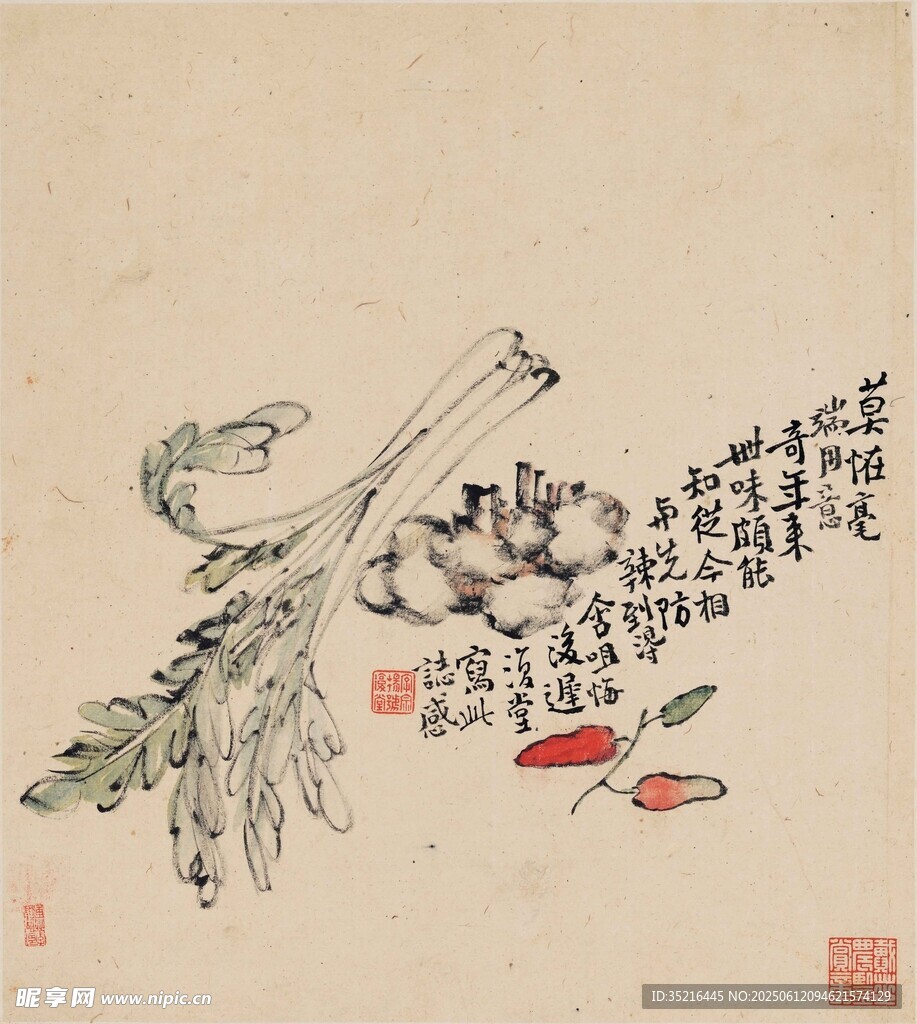 莫恠毫
端用意
奇年来
世味頗能
知從今相
与先防
辣到得
含咀悔
後遲
復堂
寫此
誌感
字宗
揚號
復堂
昵享网 www.nipic.cn
ID:35216445 NO:20250612094621574129